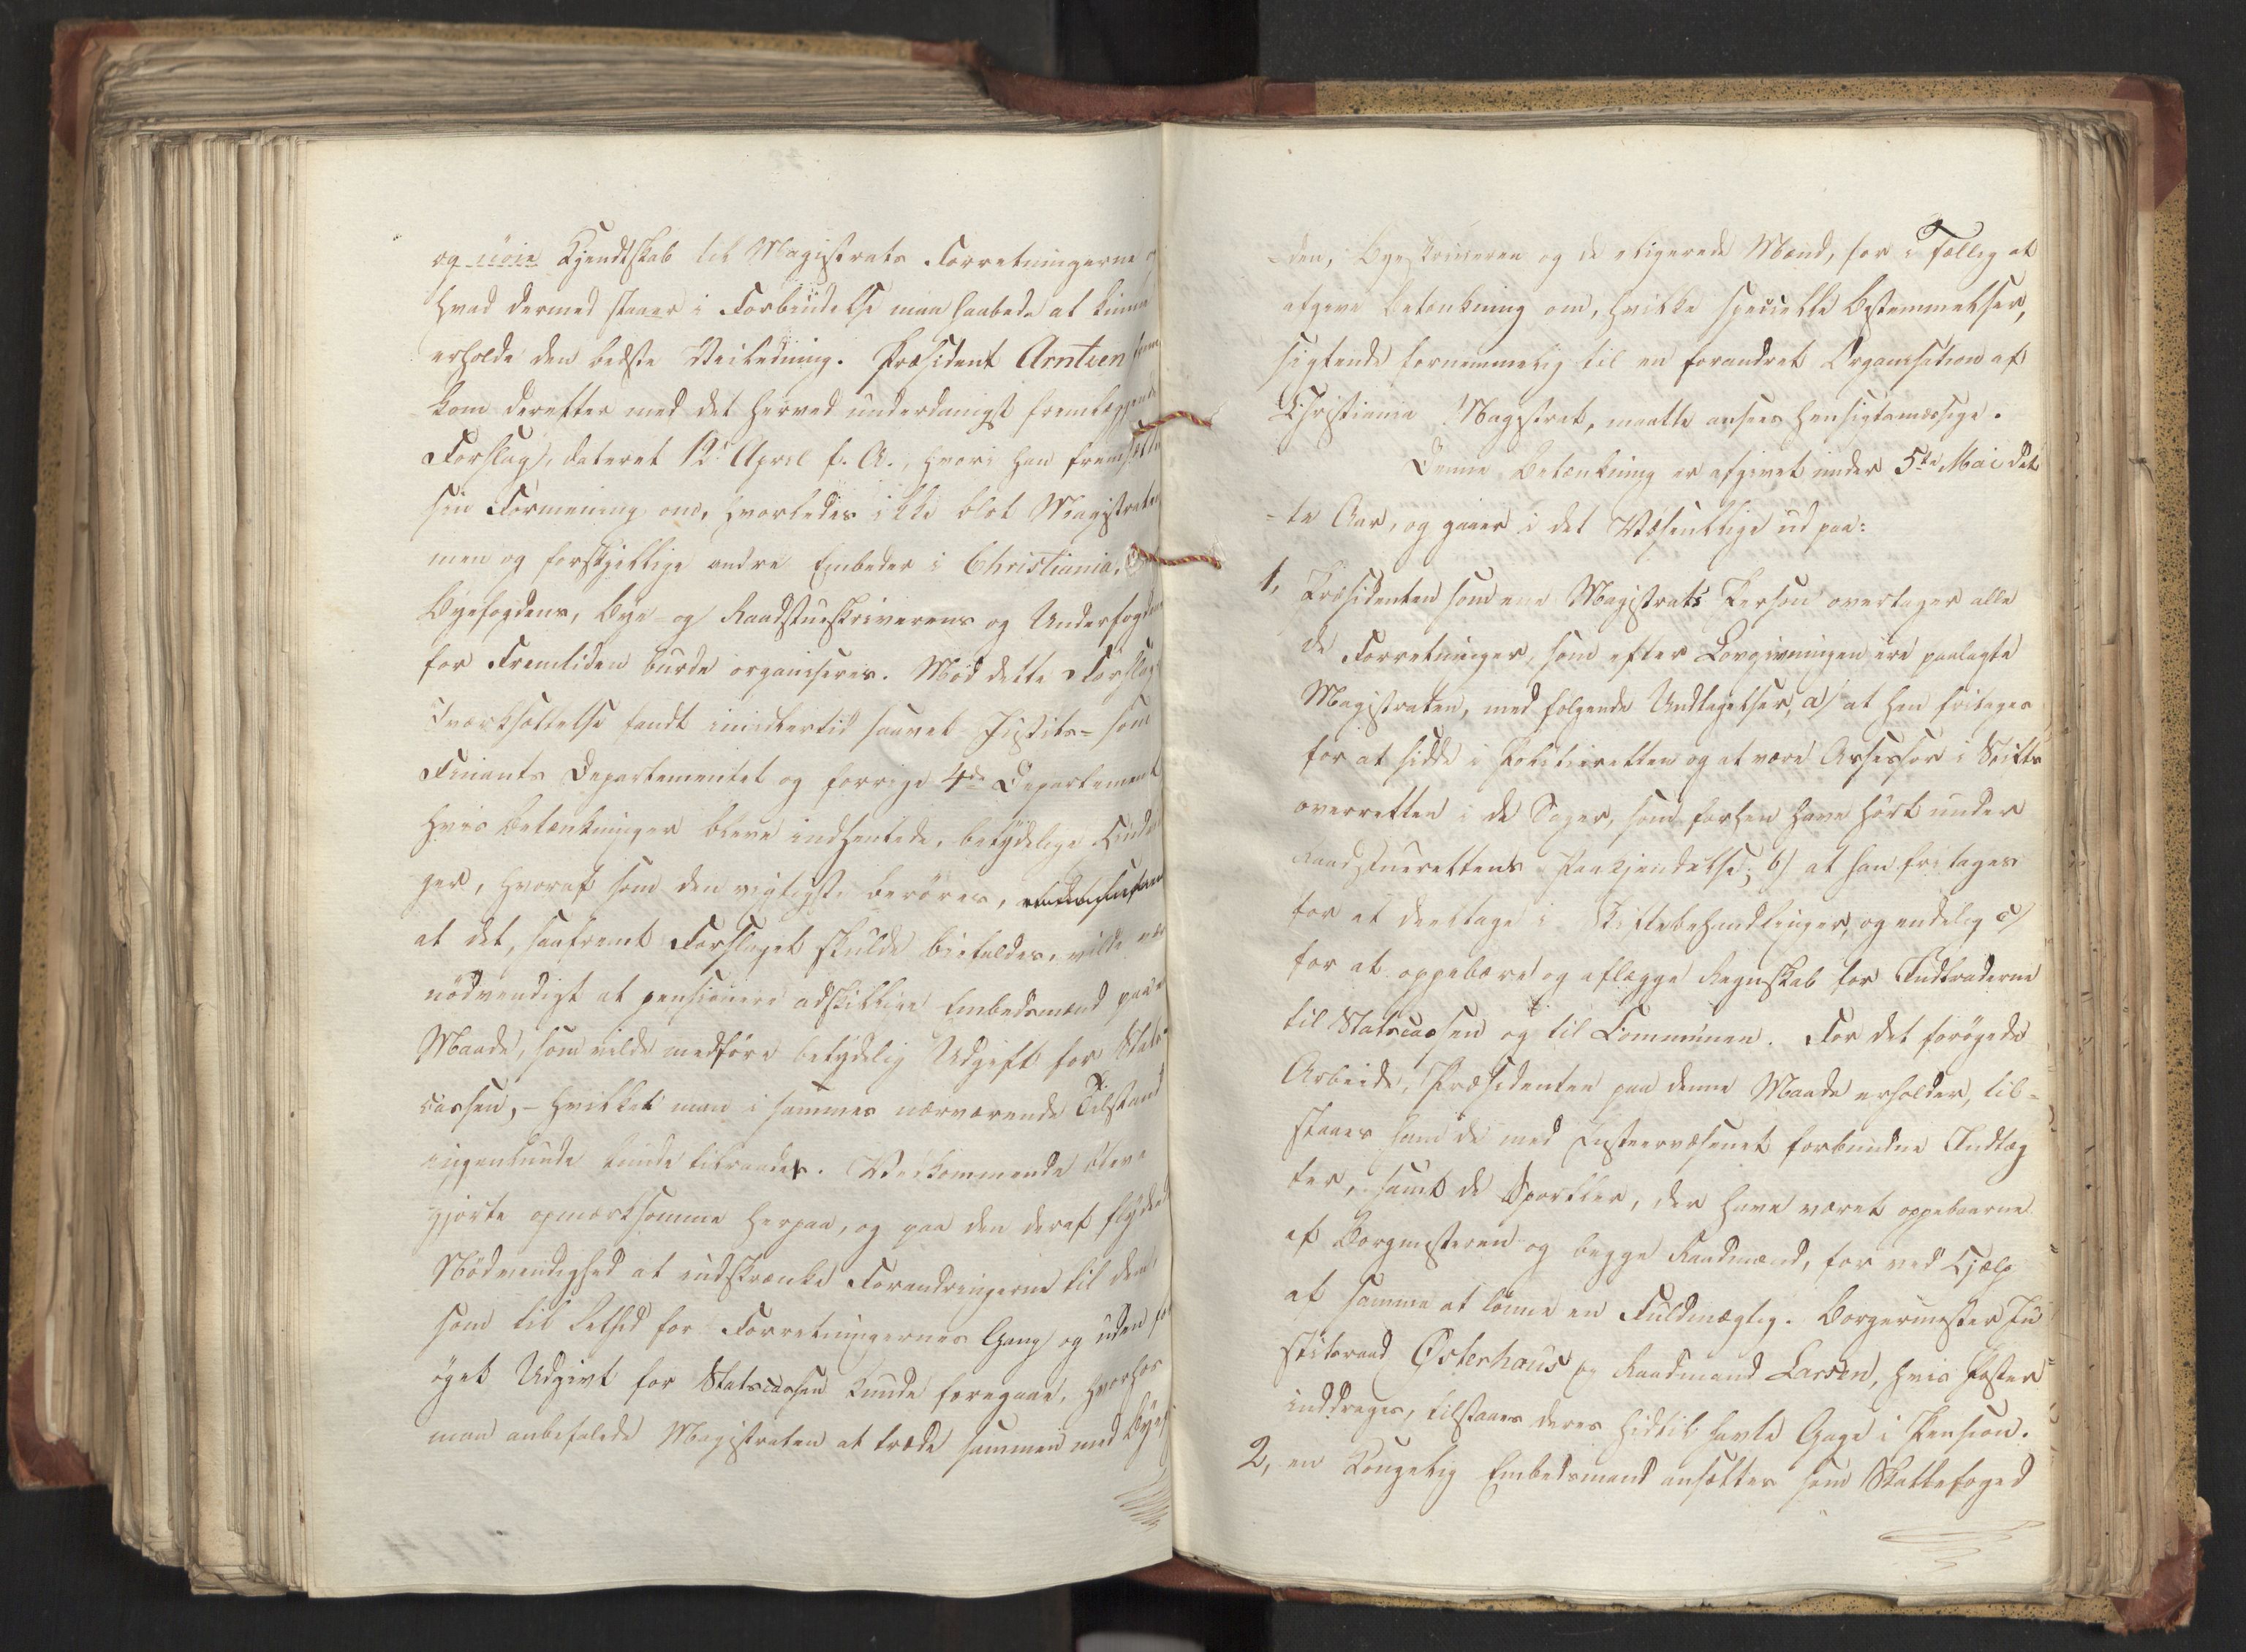 og nöie Kjendtskab til Magistrats Forretningerne
hvad dermed staaer i Forbindelse man haabede at kunne
erholde den bedste Veiledning. Præsident Arntzen
kom derefter med det herved underdanigst fremlæggende
Forslag, dateret 12 April f. A., hvori han fremsætter
sin Formening om, hvorledes ikke blot Magistraten
men og forskjellige andre Embeder i Christiania,
Byefogdens, Bye- og Raadstueskriverens og Underfogdens
for Fremtiden burde organiseres. Mod dette Forslags
Iværksættelse fandt imidlertid saavel Justits- som
Finants Departementet og forrige 4de Departement
hvis Betænkninger bleve indhentede, betydelige
ger, hvoraf som den vigtigste berøres,
at det, saafremt Forslaget skulde bifaldes, vilde
nödvendigt at pensionere adskillige Embedsmænd paa
Maade, som vilde medföre betydelig Udgift for Stats-
cassen, - hvilket man i sammes nærværende Tilstand
ingenlunde kunde tilraade. Vedkommende bleve
gjorte opmærksomme herpaa, og paa den deraf flydende
Nödvendighed at indskrænke Forandringerne til dem,
som til Lethed for Forretningernes Gang og uden for
öget Udgivt for Statscassen kunde foregaae, hvorhos
man anbefalede Magistraten at træde sammen med Byefog
-den, Byeskriveren og de eligerede Mænd, for i Fællig at
afgive Betænkning om, hvilke specielle Bestemmelser,
sigtende fornemmelig til en forandret Organisation af
Christiania Magistrat, maatte ansees hensigtsmæssige.
Denne Betænkning er afgivet under 5te Mai det
-te Aar, og gaaer i det Væsentlige ud paa:
1, Præsidenten som ene Magistrats Person overtager alle
de Forretninger, som efter Lovgivningen ere paalagte
Magistraten, med følgende Undtagelser, a) at han fritages
for at sidde i Politieretten og at være Assessor i Stifts
overretten i de Sager, som forhen have hört under
Raadstuerettens Paakjendelse; b) at han fritages
for at deeltage i Skiftebehandlinger, og endelig c)
for at oppebære og aflægge Regnskab for Indtraderne
til Statscassen og til Communen. For det forögede
Arbeide, Præsidenten paa denne Maade erholder, til-
staaes ham de med Justeervæsenet forbundne Indtæg
ter, samt de Sportler, der have været oppebaarne
af Borgmesteren og begge Raadmænd, for ved Hjælp
af samme at lönne en Fuldmægtig. Borgermester Ju
stitsraad Osterhaus og Raadmand Larsen, hvis Poster
inddrages, tilstaaes deres hidtil havte Gage i Pension.
2, en Kongelig Embedsmand ansættes som Skattefoged